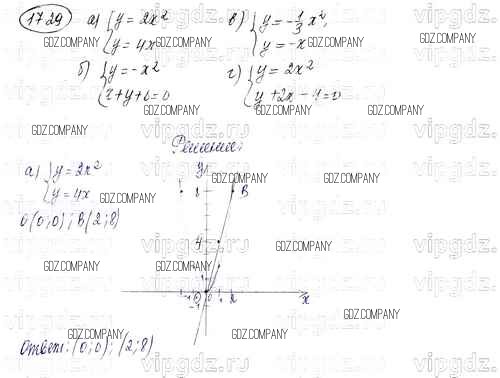 1729 а) { y = 2x² в) { y = -1/3 x²,
y = 4x y = -x
б) { y = -x² г) { y = 2x²
x+y+6=0 y+2x-4=0
Решение:
а) { y = 2x²
y = 4x
O(0;0); B(2;8)
y
8 B
4
-1 0 1 2 x
-1
Ответ: (0;0); (2;8)
GDZ.COMPANY
vipgdz.ru